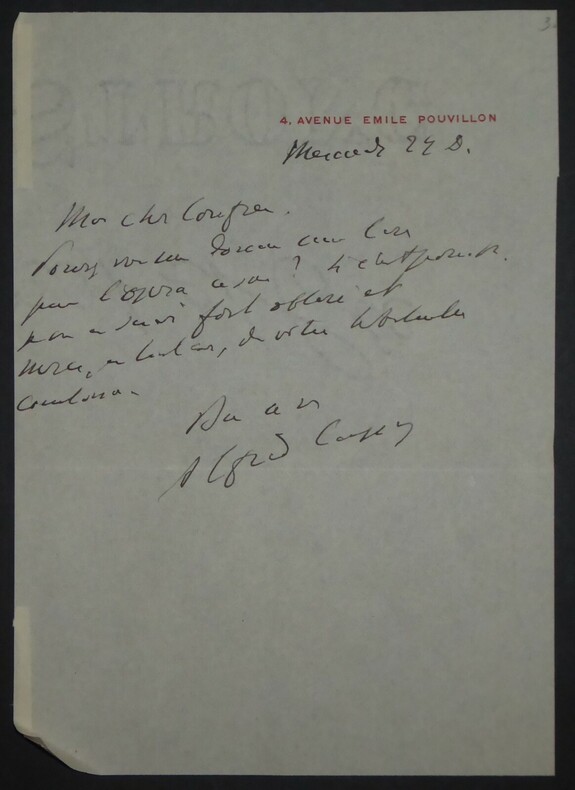 3.
4, AVENUE EMILE POUVILLON
Mercredi 24 D.
Mon cher Confrère.
Pouvez vous me donner une loge
pour l'opéra ce soir ? Si c'est possible
je vous en serai fort obligé et
merci, en tout cas, de votre habituelle
Alfred